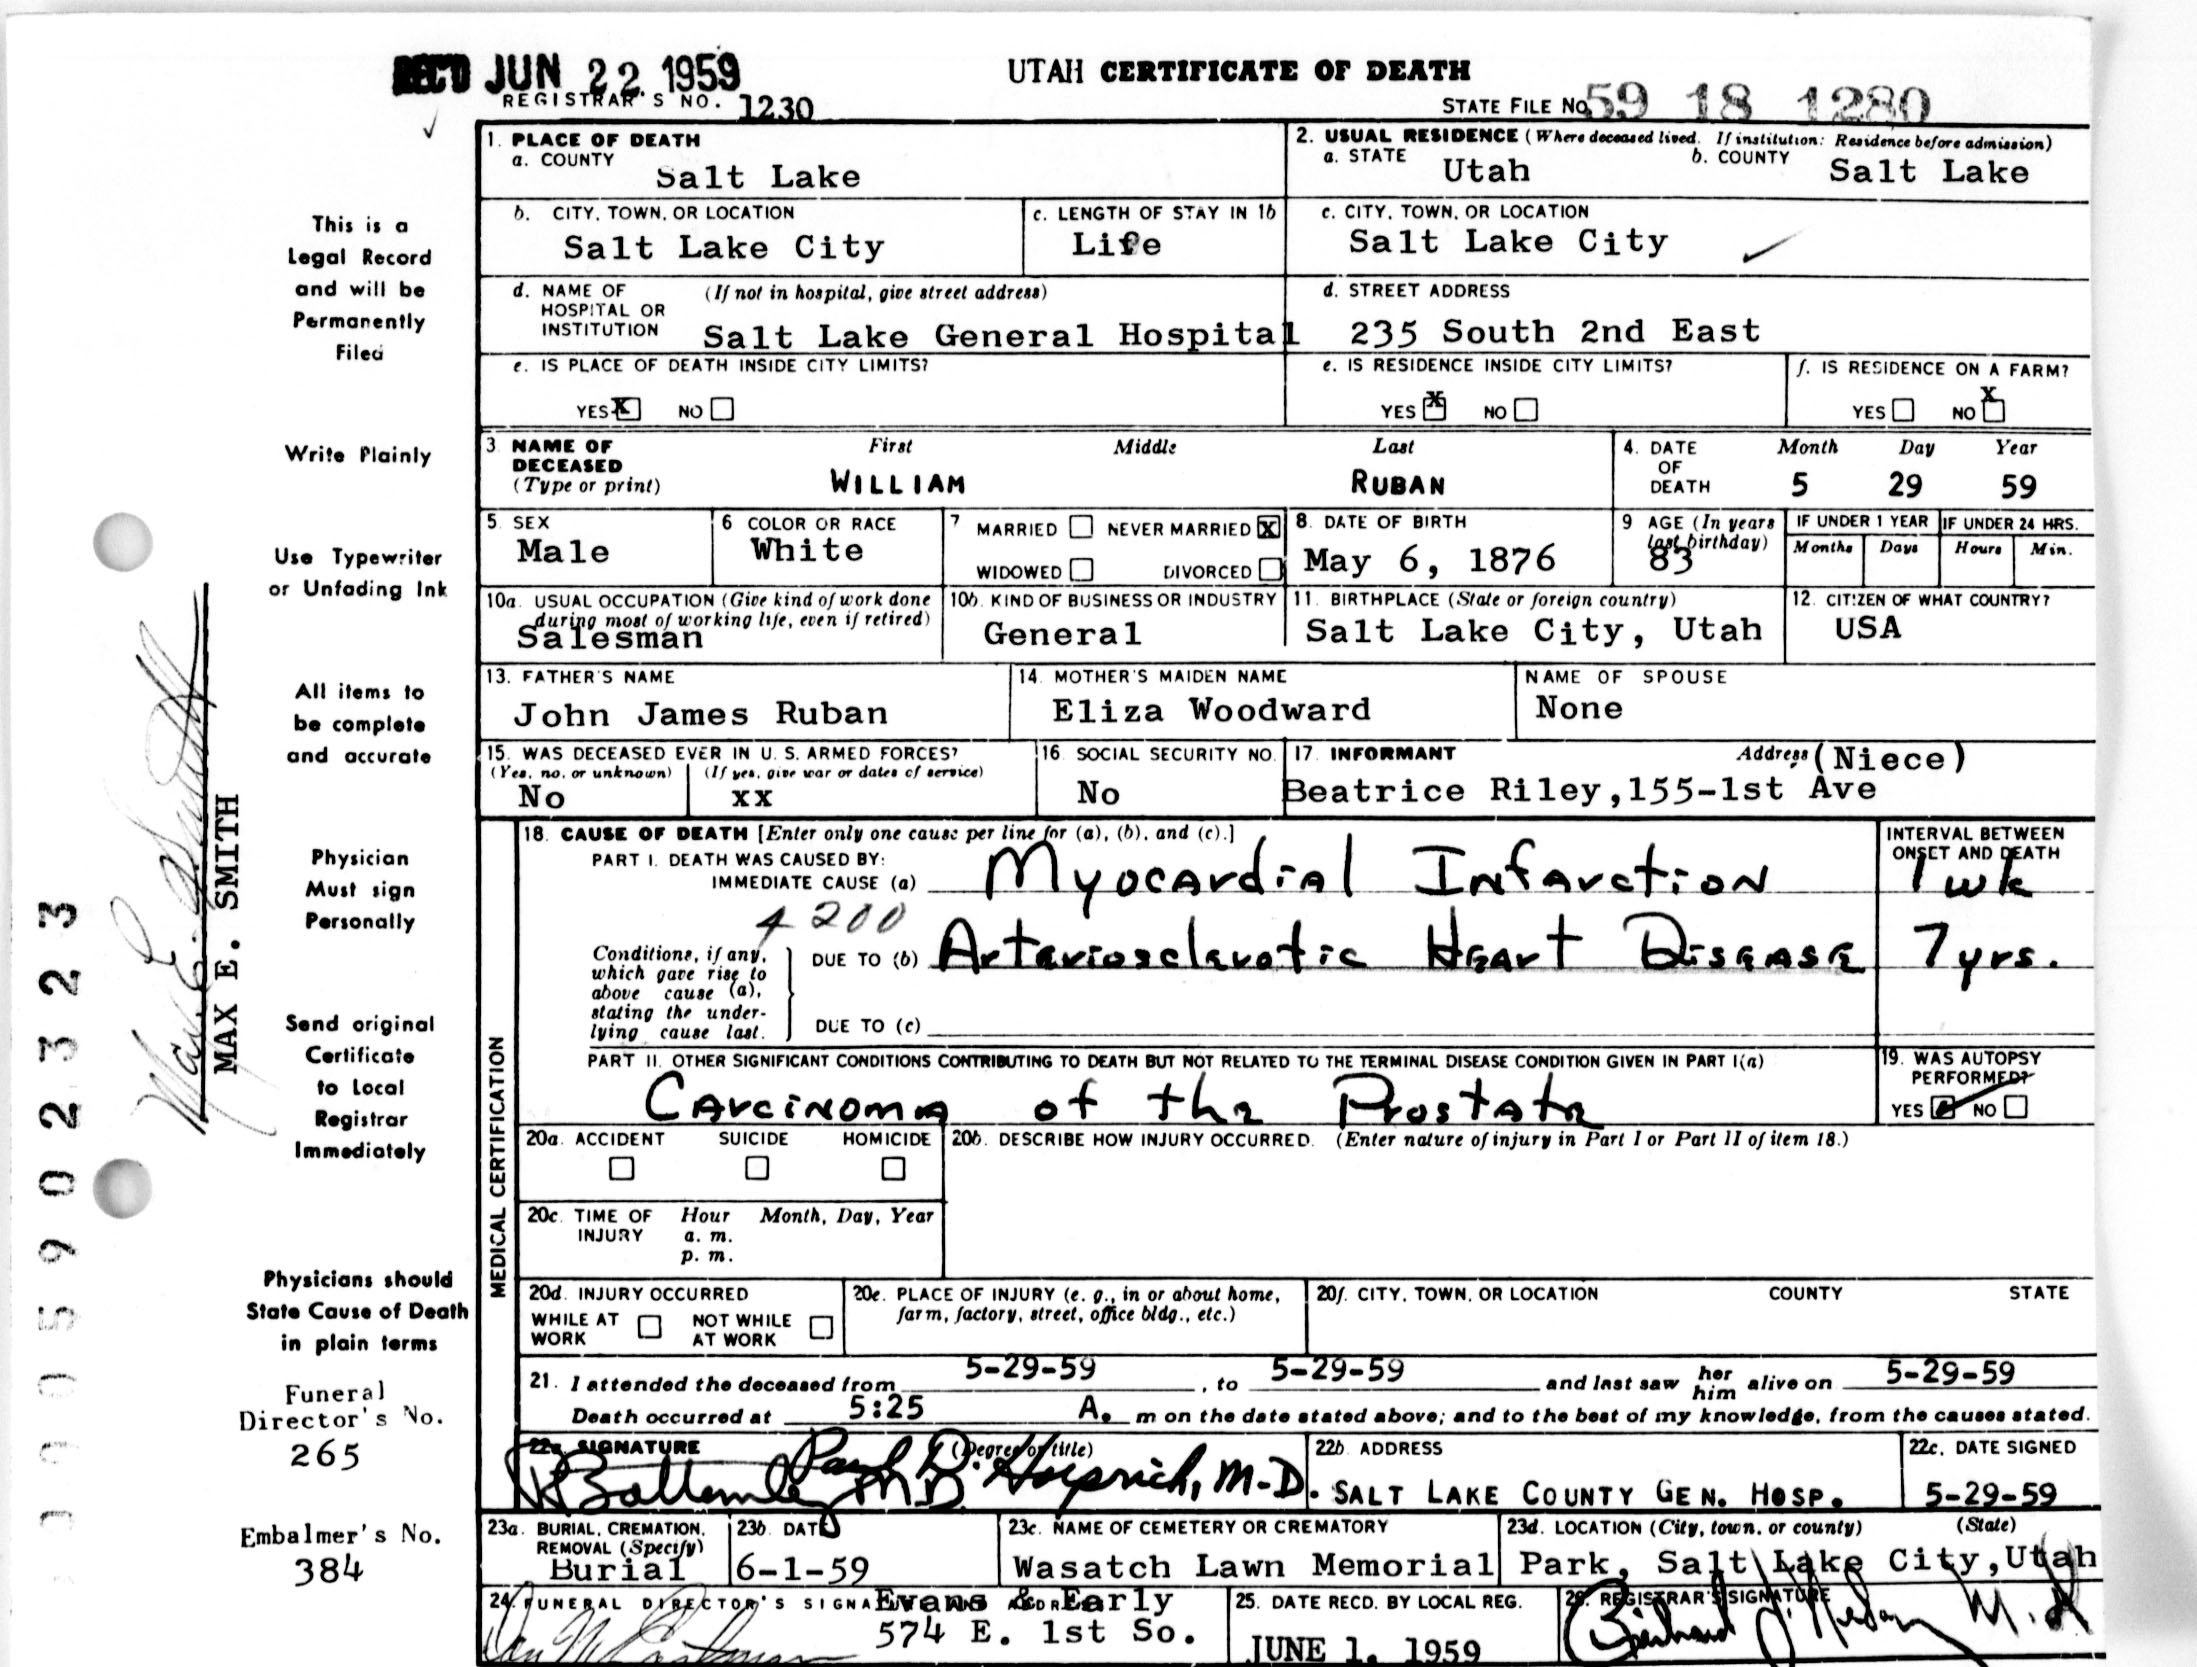 REC'D JUN 22 1959
UTAH CERTIFICATE OF DEATH
REGISTRAR'S NO. 1230
STATE FILE NO. 59 18 1280
1. PLACE OF DEATH
a. COUNTY Salt Lake
2. USUAL RESIDENCE (Where deceased lived. If institution: Residence before admission)
a. STATE Utah b. COUNTY Salt Lake
b. CITY, TOWN, OR LOCATION Salt Lake City
c. LENGTH OF STAY IN 1b Life
c. CITY, TOWN, OR LOCATION Salt Lake City
d. NAME OF HOSPITAL OR INSTITUTION (If not in hospital, give street address) Salt Lake General Hospital
d. STREET ADDRESS 235 South 2nd East
e. IS PLACE OF DEATH INSIDE CITY LIMITS?
YES X NO
e. IS RESIDENCE INSIDE CITY LIMITS?
YES X NO
f. IS RESIDENCE ON A FARM?
YES NO X
3. NAME OF DECEASED (Type or print) First Middle Last
WILLIAM RUBAN
4. DATE OF DEATH Month Day Year
5 29 59
5. SEX Male
6 COLOR OR RACE White
7 MARRIED NEVER MARRIED X
WIDOWED DIVORCED
8. DATE OF BIRTH May 6, 1876
9 AGE (In years last birthday) 83
IF UNDER 1 YEAR Months Days
IF UNDER 24 HRS. Hours Min.
10a. USUAL OCCUPATION (Give kind of work done during most of working life, even if retired) Salesman
10b. KIND OF BUSINESS OR INDUSTRY General
11. BIRTHPLACE (State or foreign country) Salt Lake City, Utah
12. CITIZEN OF WHAT COUNTRY? USA
13. FATHER'S NAME John James Ruban
14. MOTHER'S MAIDEN NAME Eliza Woodward
NAME OF SPOUSE None
15. WAS DECEASED EVER IN U. S. ARMED FORCES?
(Yes, no, or unknown) No
(If yes, give war or dates of service) xx
16. SOCIAL SECURITY NO. No
17. INFORMANT Address (Niece)
Beatrice Riley, 155-1st Ave
MEDICAL CERTIFICATION
18. CAUSE OF DEATH [Enter only one cause per line for (a), (b), and (c).]
INTERVAL BETWEEN ONSET AND DEATH
PART I. DEATH WAS CAUSED BY:
IMMEDIATE CAUSE (a) Myocardial Infarction 1 wk
4200
Conditions, if any, which gave rise to above cause (a), stating the underlying cause last.
DUE TO (b) Arteriosclerotic Heart Disease 7 yrs.
DUE TO (c)
PART II. OTHER SIGNIFICANT CONDITIONS CONTRIBUTING TO DEATH BUT NOT RELATED TO THE TERMINAL DISEASE CONDITION GIVEN IN PART I(a)
Carcinoma of the Prostate
19. WAS AUTOPSY PERFORMED?
YES NO
20a. ACCIDENT SUICIDE HOMICIDE
20b. DESCRIBE HOW INJURY OCCURRED. (Enter nature of injury in Part I or Part II of item 18.)
20c. TIME OF INJURY Hour Month, Day, Year
a. m.
p. m.
20d. INJURY OCCURRED
WHILE AT WORK NOT WHILE AT WORK
20e. PLACE OF INJURY (e. g., in or about home, farm, factory, street, office bldg., etc.)
20f. CITY, TOWN, OR LOCATION COUNTY STATE
21. I attended the deceased from 5-29-59, to 5-29-59 and last saw her him alive on 5-29-59
Death occurred at 5:25 A. m on the date stated above; and to the best of my knowledge, from the causes stated.
22a. SIGNATURE (Degree or title)
Paul D. M.D.
22b. ADDRESS SALT LAKE COUNTY GEN. HOSP.
22c. DATE SIGNED 5-29-59
23a. BURIAL, CREMATION, REMOVAL (Specify) Burial
23b. DATE 6-1-59
23c. NAME OF CEMETERY OR CREMATORY
23d. LOCATION (City, town, or county) (State)
Wasatch Lawn Memorial Park, Salt Lake City, Utah
24. FUNERAL DIRECTOR'S SIGNATURE AND ADDRESS
Evans & Early
574 E. 1st So.
25. DATE RECD. BY LOCAL REG. JUNE 1, 1959
26. REGISTRAR'S SIGNATURE
This is a
Legal Record
and will be
Permanently
Filed
Write Plainly
Use Typewriter
or Unfading Ink
All items to
be complete
and accurate
Physician
Must sign
Personally
Send original
Certificate
to Local
Registrar
Immediately
Physicians should
State Cause of Death
in plain terms
Funeral
Director's No.
265
Embalmer's No.
384
Max E. Smith
MAX E. SMITH
0005902323